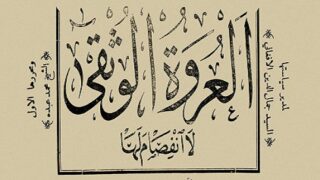 العُروَةُ الوُثقى
لَا انْفِصَامَ لَهَا
لمدير سياستها
السيد جمال الدين الافغاني
ومحررها الاول
الشيخ محمد عبده